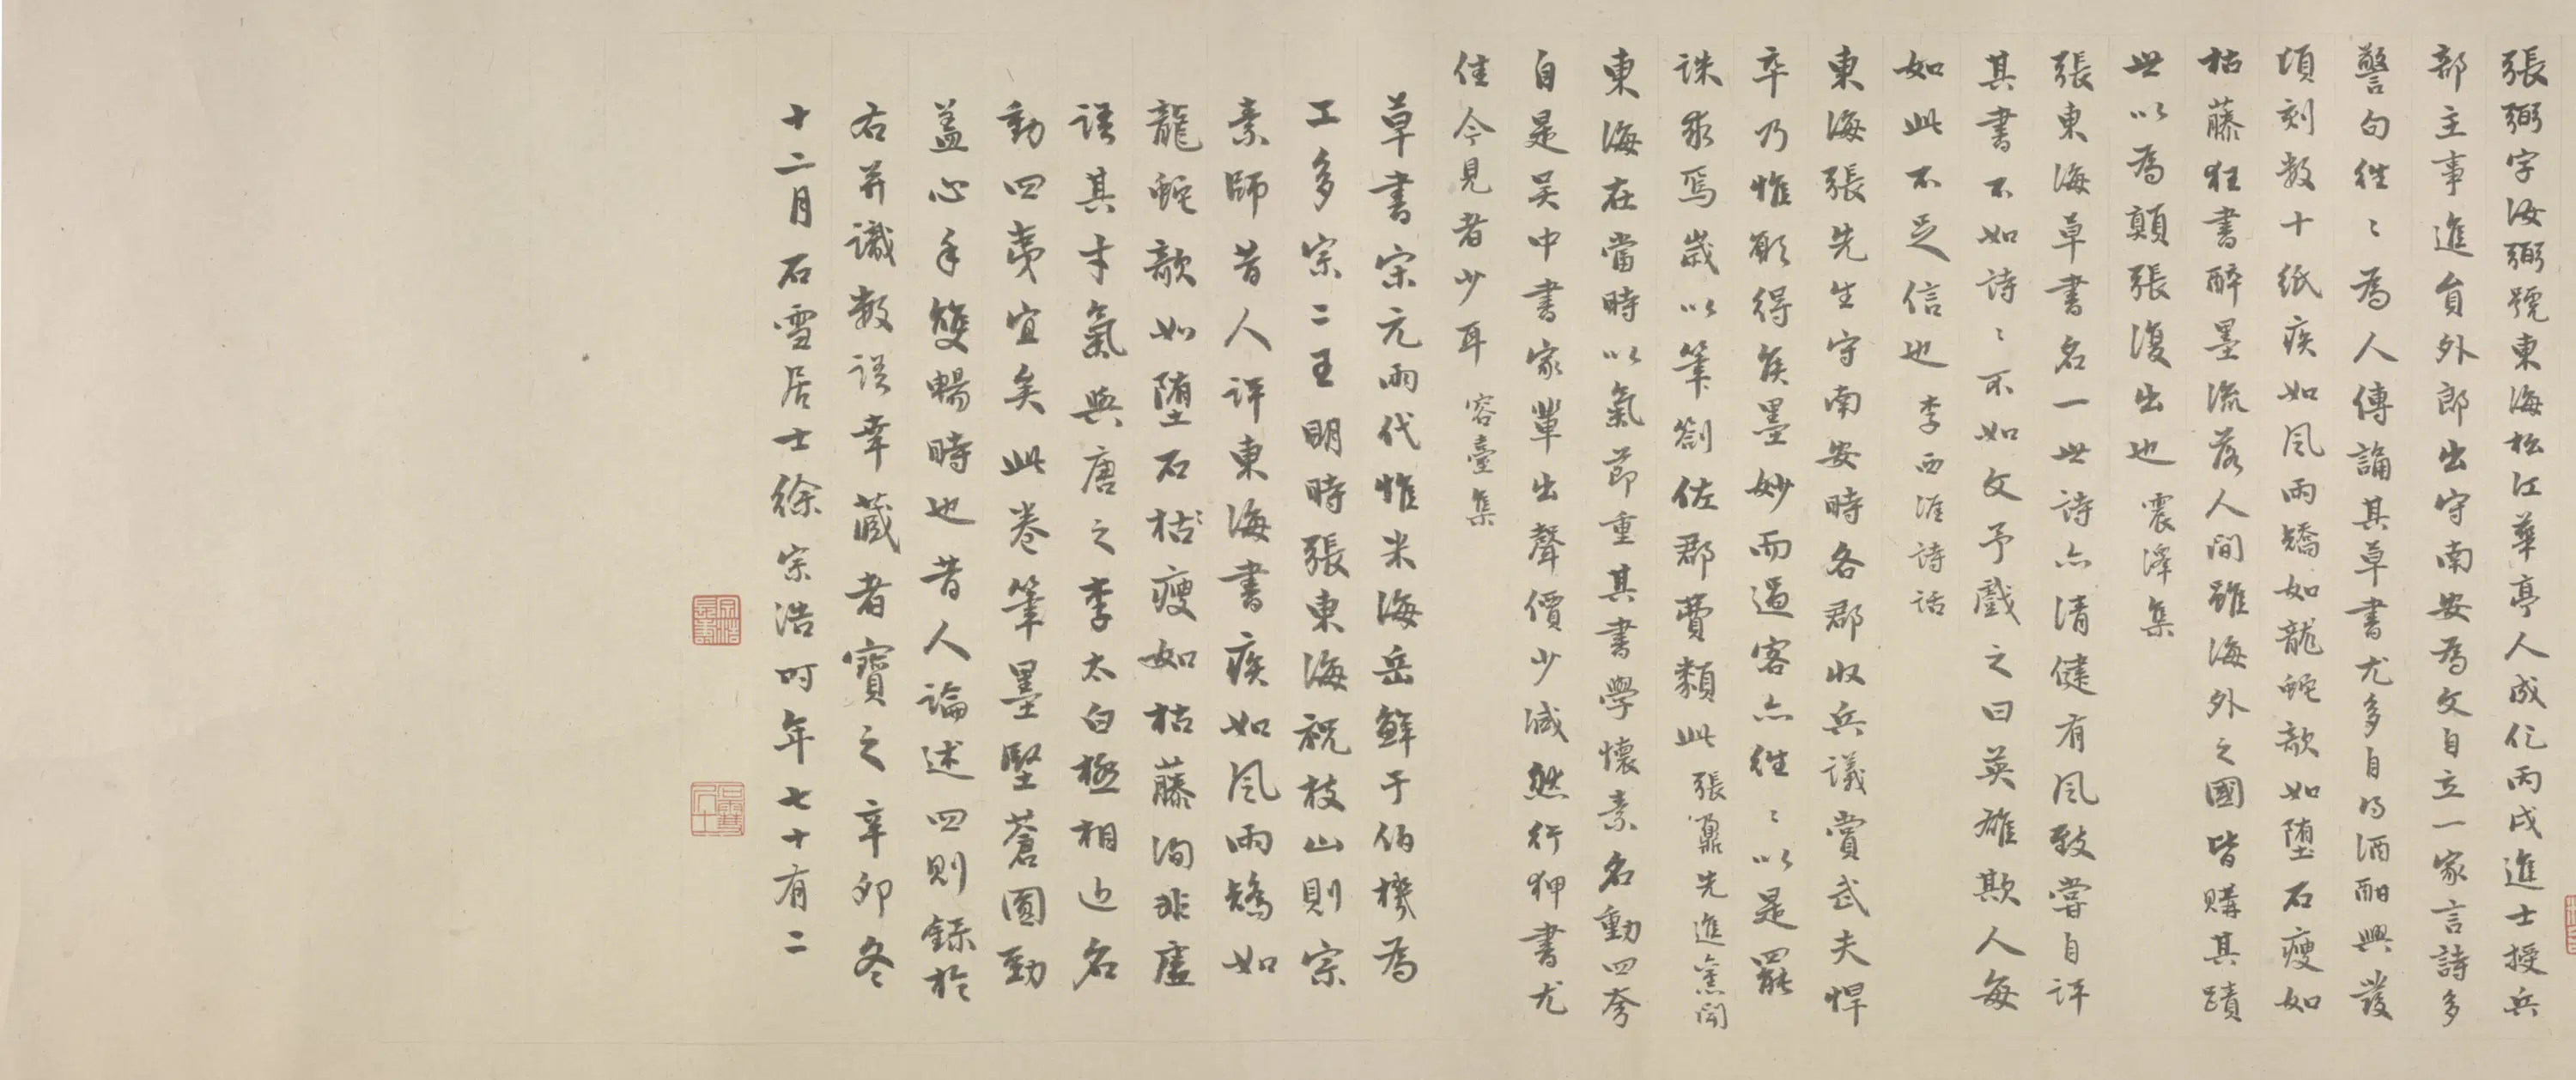 張弼字汝弼號東海松江華亭人成化丙戌進士授兵
部主事進員外郎出守南安為文自立一家言詩多
警句往〻為人傳誦其草書尤多自得酒酣興發
頃刻數十紙疾如風雨矯如龍蛇欹如墮石瘦如
枯藤狂書醉墨流落人間雖海外之國皆購其蹟
世以為顛張復出也 震澤集
張東海草書名一世詩亦清健有風致嘗自評
其書不如詩〻不如文予戲之曰英雄欺人每
如此不足信也 李西涯詩話
東海張先生守南安時各郡收兵議賞武夫悍
卒乃惟願得侯墨妙而過客亦往〻以是罷
誅求焉歲以筆劄佐郡費類此 張鼐先進舊聞
東海在當時以氣節重其書學懷素名動四夸
自是吴中書家輩出聲價少減然行狎書尤
佳今見者少耳 容臺集
草書宋元兩代惟米海岳鮮于伯機為
工多宗二王明時張東海祝枝山則宗
素師昔人評東海書疾如風雨矯如
龍蛇欹如墮石枯瘦如枯藤洵非虛
語其才氣與唐之李太白極相近名
動四夷宜矣此卷筆墨堅蒼圓勁
蓋心手雙暢時也昔人論述四則錄於
右并識數語幸藏者寶之辛卯冬
十二月石雪居士徐宗浩時年七十有二